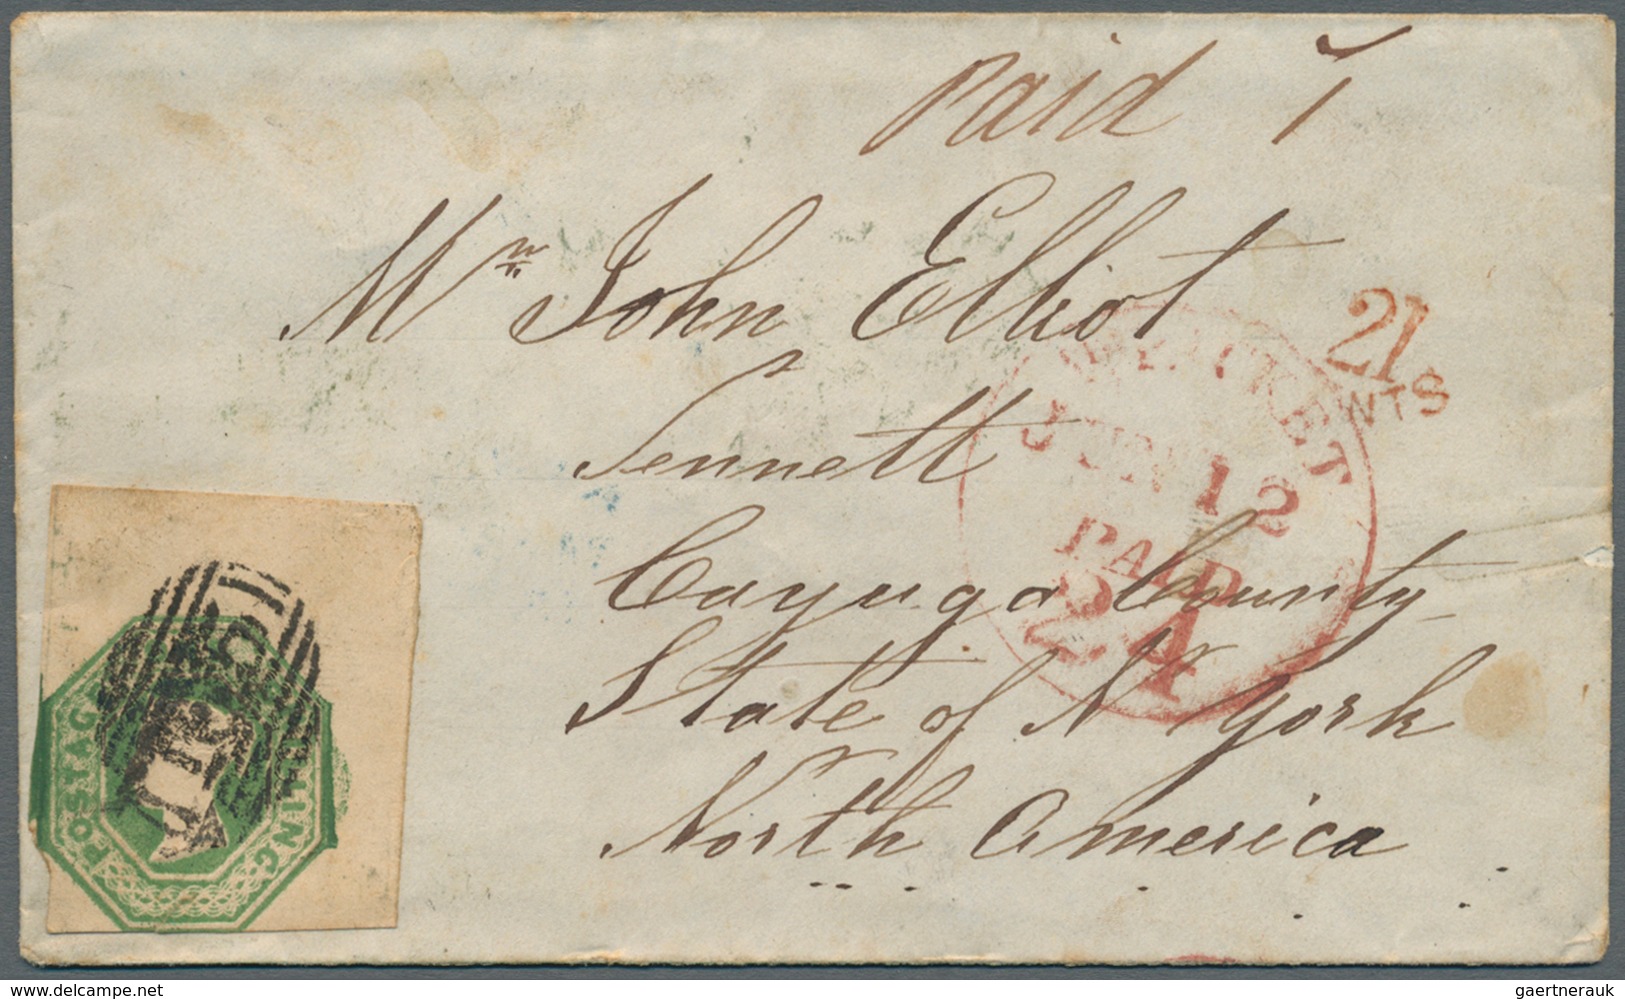 Paid 1
Mr John Elliot
Sennett
Cayuga County
State of N York
North America
21
NTS
PACKET
JUN 12
PAID
24
POSTAGE
delcampe.net
gaertnerauk